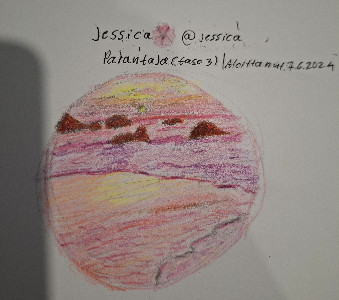 Jessica @jessica
Parantaja (taso 3) | Aloittanut 7.6.2024